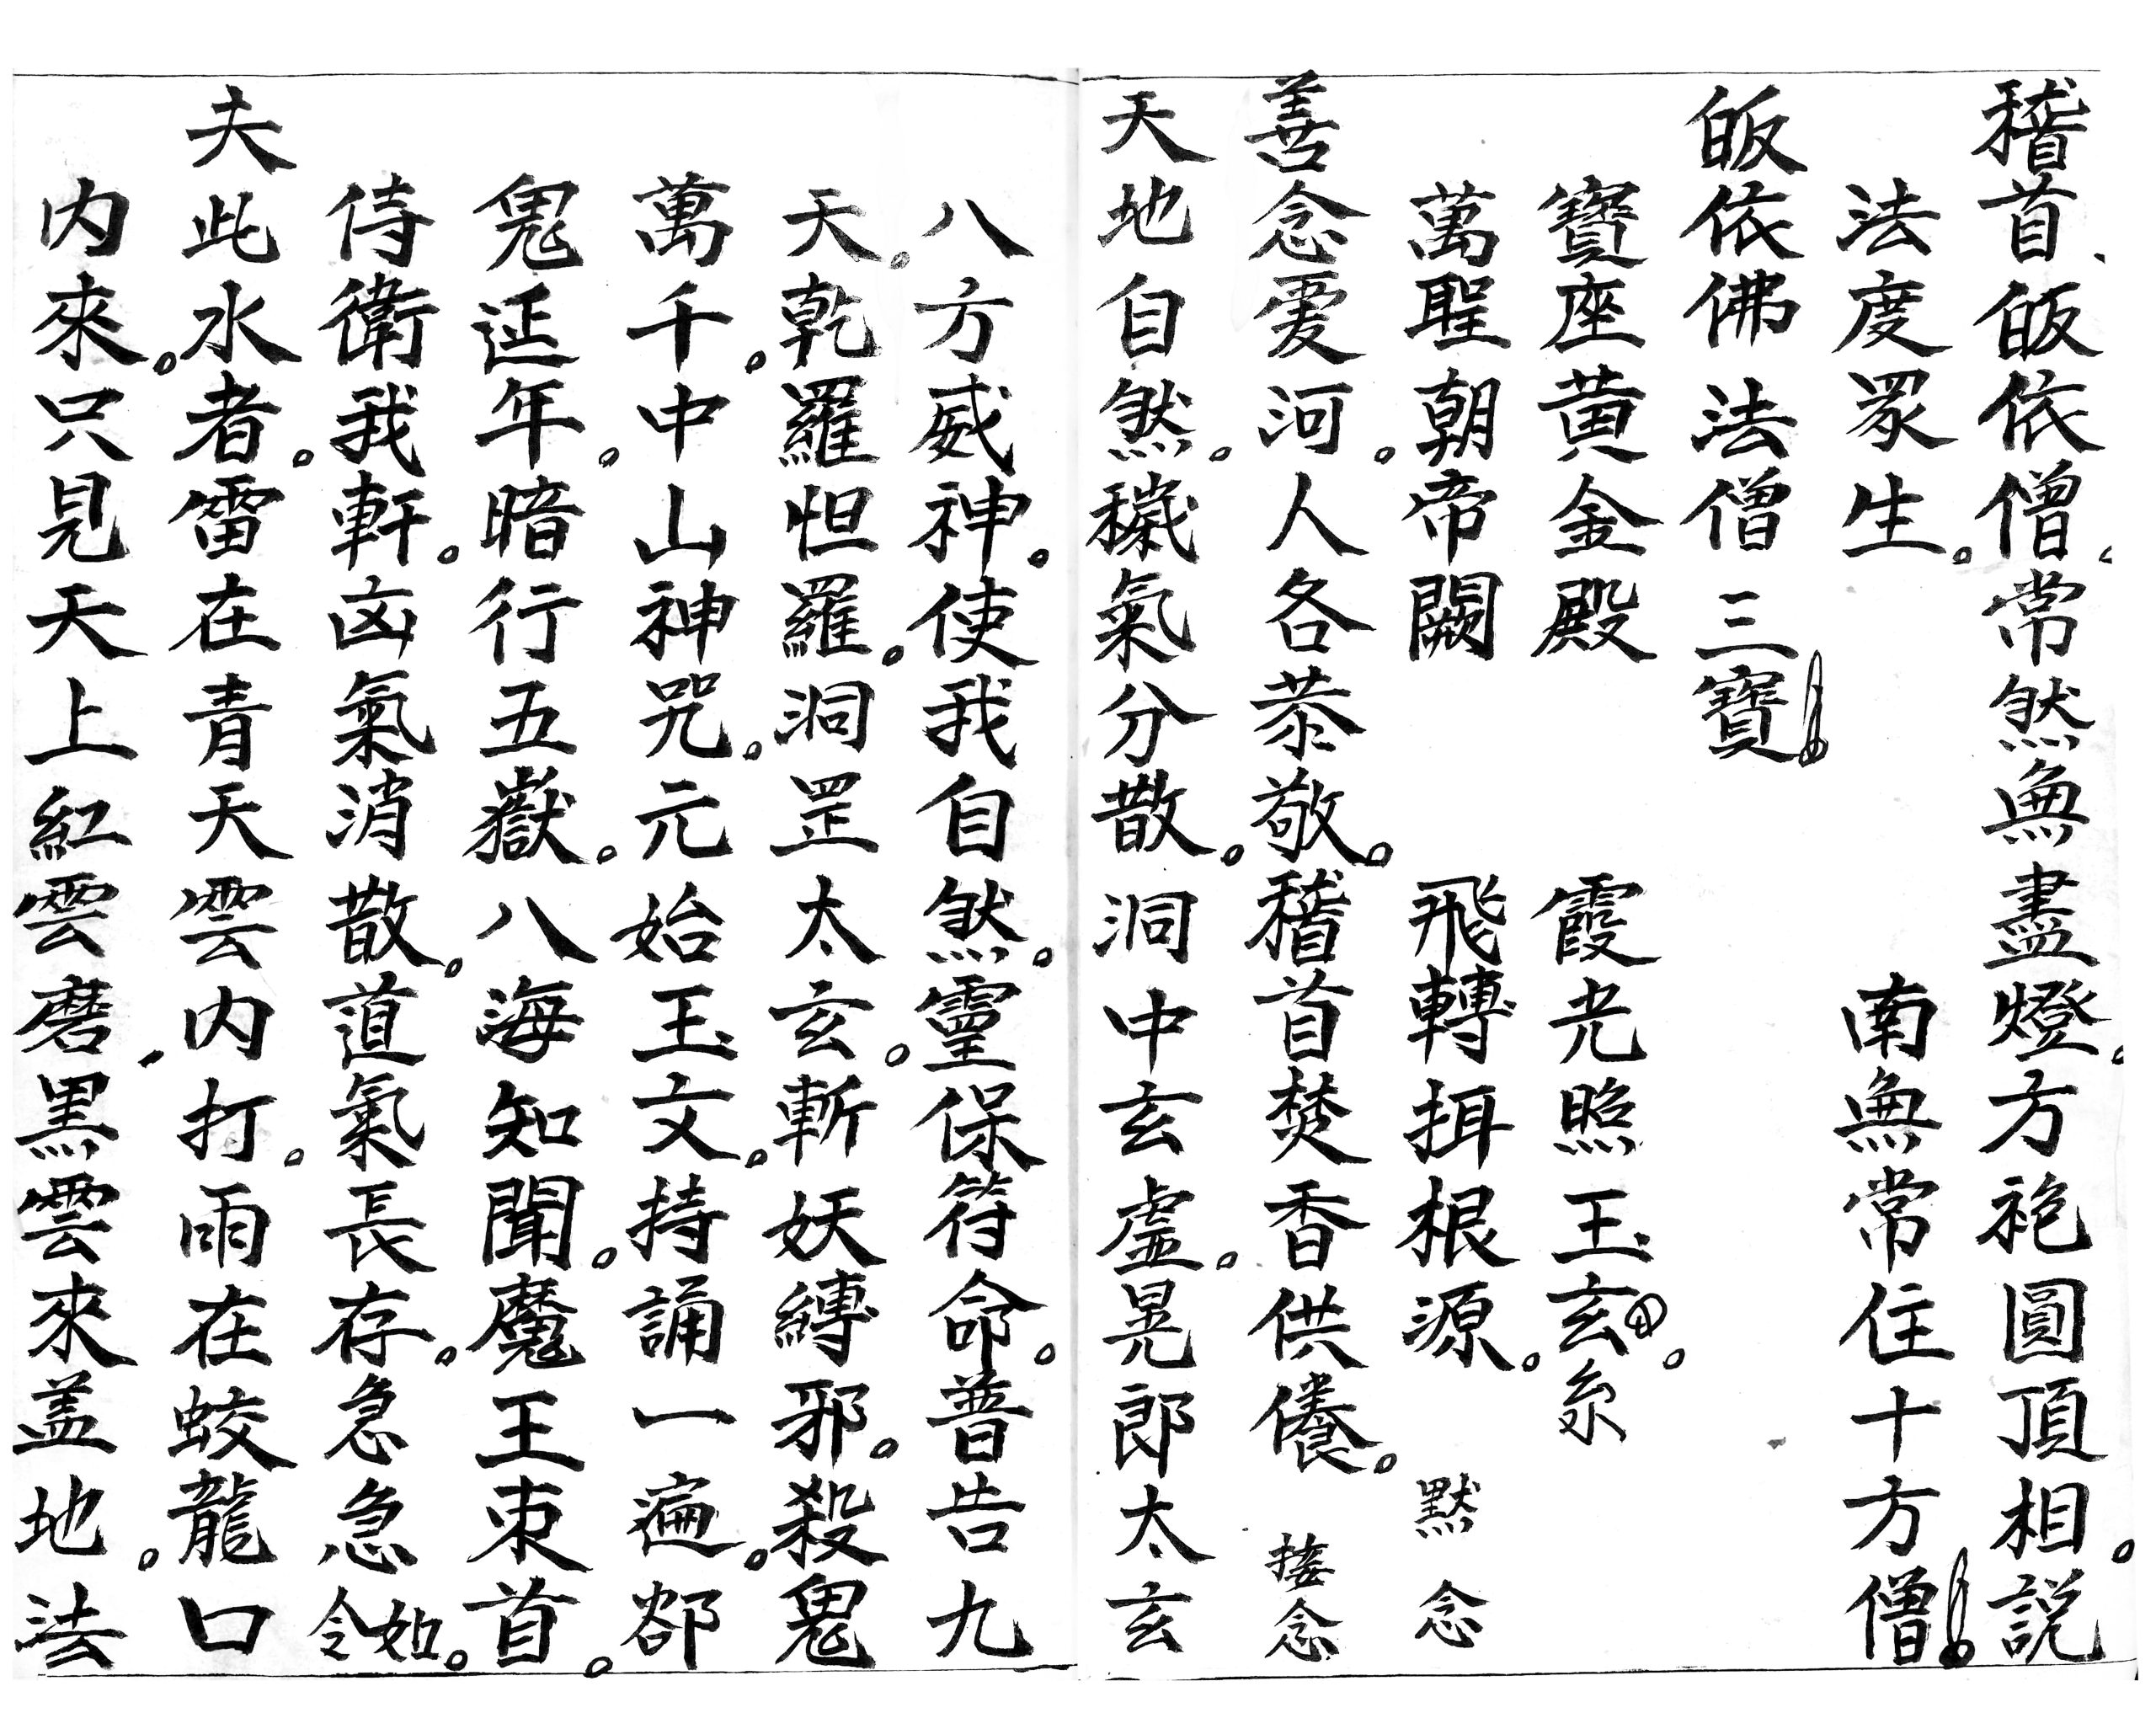 稽首皈依僧。常然無盡燈。方袍圓頂相。説
法度眾生。南無常住十方僧
皈依佛法僧三寶
寶座黄金殿 霞光照玉玄。糸
萬聖朝帝闕 飛轉揖根源。黙念
善念愛河。人各恭敬。稽首焚香供養。接念
天地自然。穢氣分散。洞中玄虛。晃郎太玄
八方威神。使我自然。靈保符命。普告九
天。乾羅怛羅。洞罡太玄。斬妖縛邪。殺鬼
萬千。中山神咒。元始玉文。持誦一遍。郤
鬼延年。暗行五嶽。八海知聞。魔王束首。
侍衛我軒。凶氣消散。道氣長存。急急如令。
夫此水者。雷在青天雲内打。雨在蛟龍口
内來。只見天上紅雲磨、黑雲來盖地。法